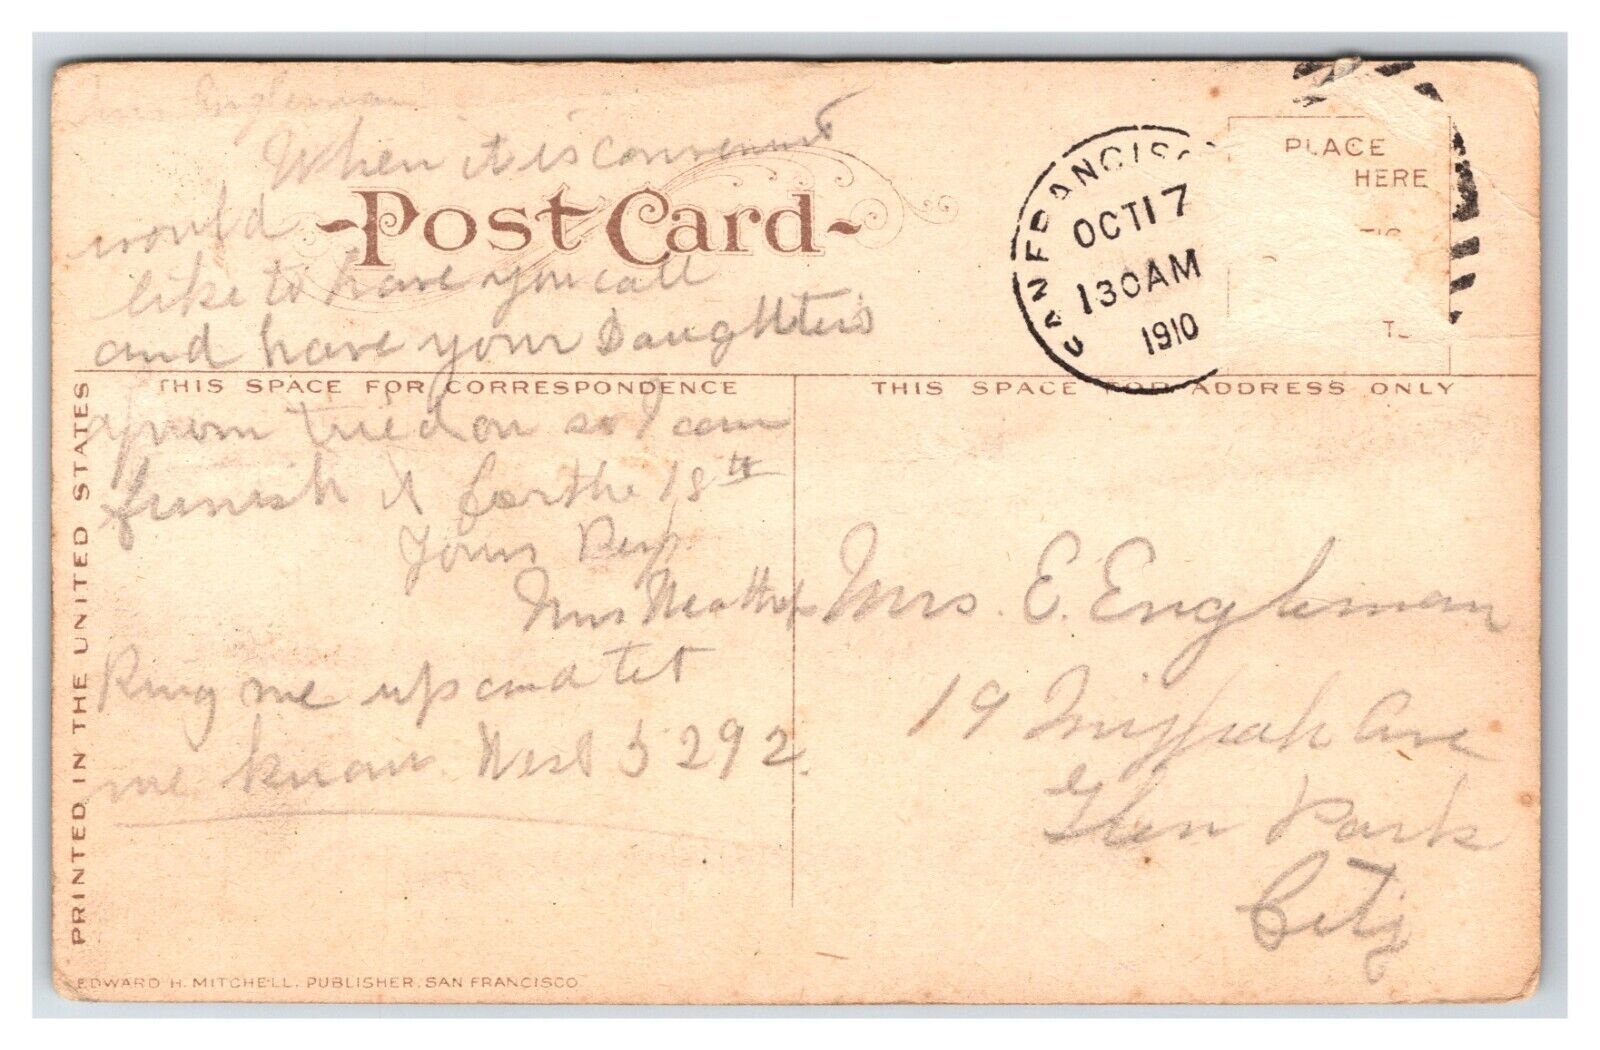 Engleman
When it is convenient
would
like to have you call
and have your Daughters
apron tried on so I can
finish it for the 18th
Yours Resp.
Mrs
Ring me up and let
me know West 5292.
Post Card
SAN FRANCISC
OCT 17
130AM
1910
PLACE
HERE
THIS SPACE FOR CORRESPONDENCE
THIS SPACE FOR ADDRESS ONLY
Mrs. E. Engleman
19 Mizpah Ave
Glen Park
City
PRINTED IN THE UNITED STATES
EDWARD H. MITCHELL, PUBLISHER, SAN FRANCISCO